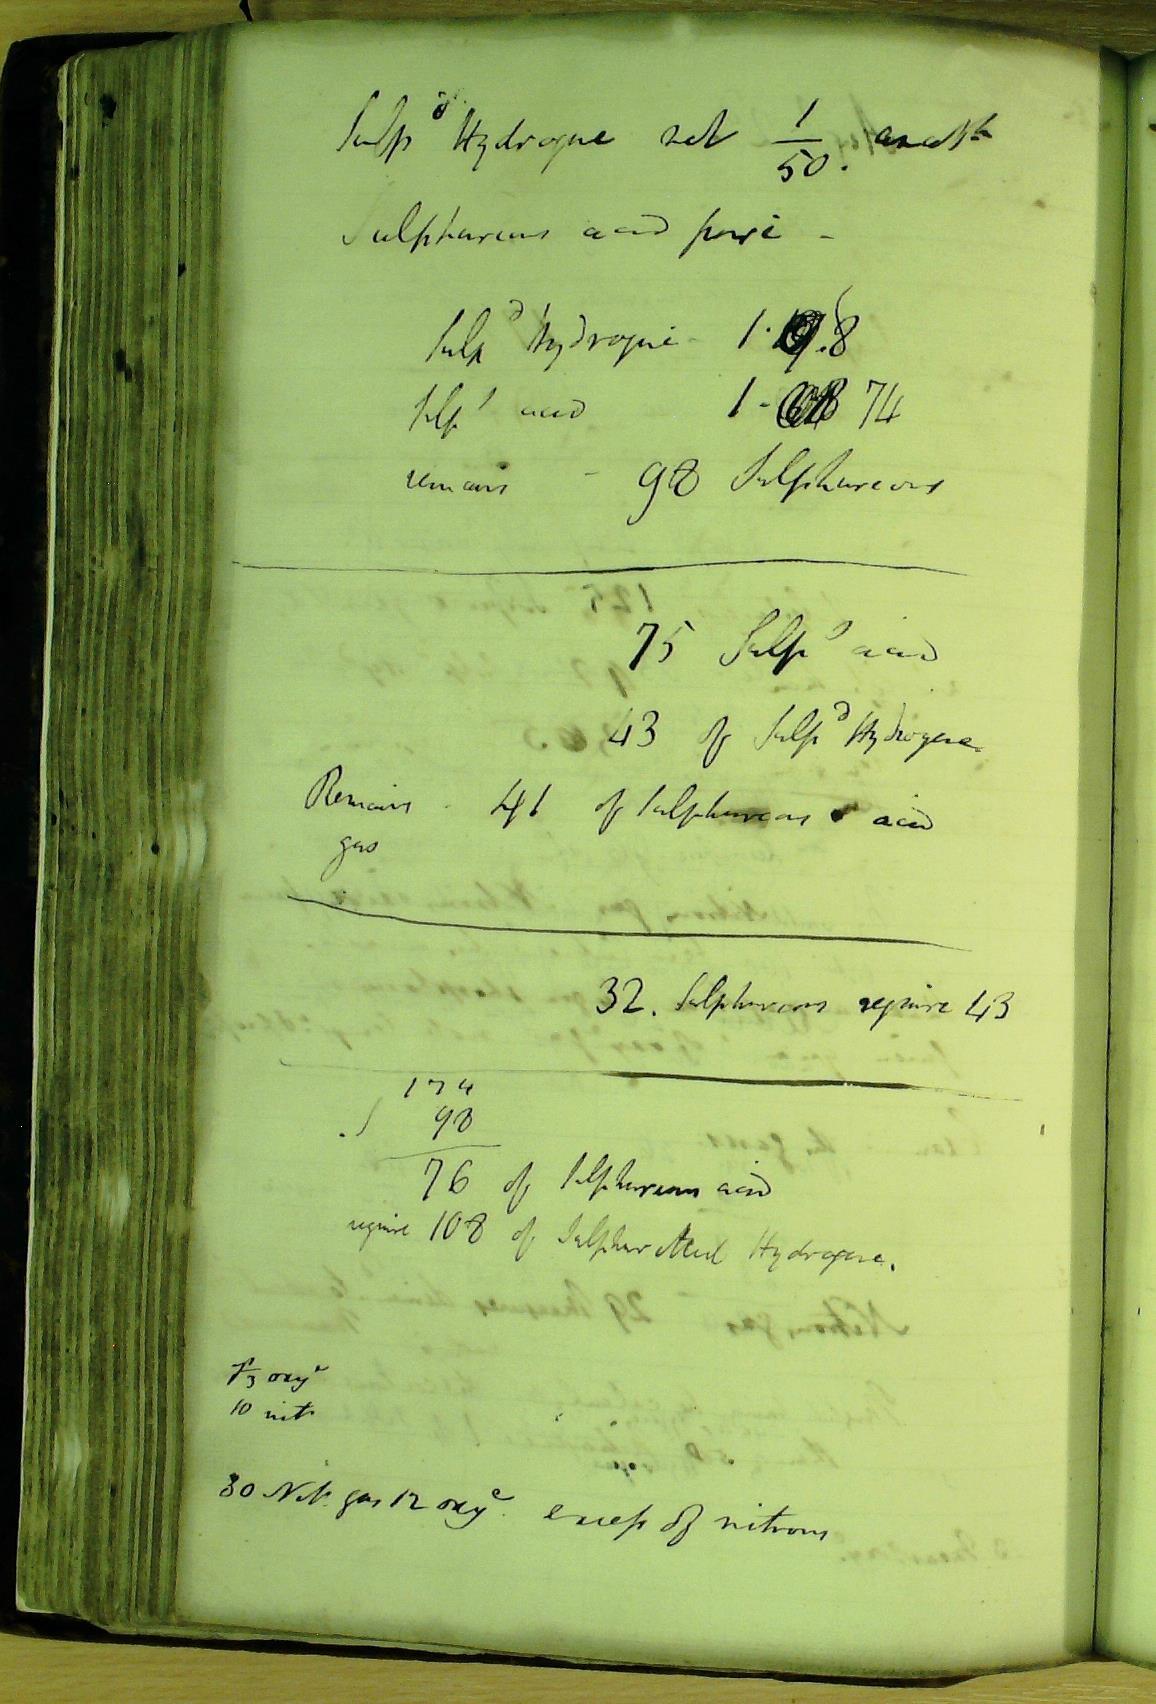 Sulpd Hydrogene not 1/50.
Sulphureous acid pure -
Sulpd Hydrogene 1. .8
Sulps acid 1 - 74
remains - 98 Sulphureous
75 Sulps acid
43 of Sulpd Hydrogene
Remains - 41 of Sulphureous acid
gas
32. Sulphureous require 43
174
98
76 of Sulphureous acid
require 108 of Sulphuretted Hydrogene.
oxye
10 nit
30 Nit. gas 12 oxye. excess of nitrous